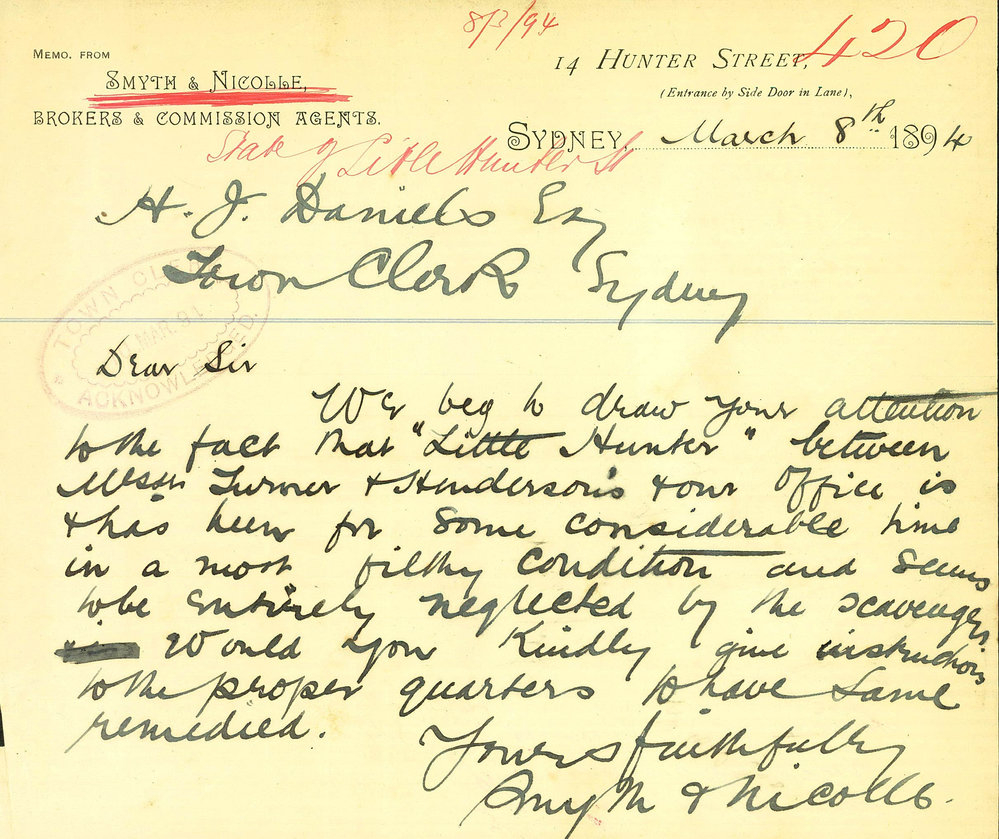 8/3/94
420
MEMO. FROM
SMYTH & NICOLLE,
BROKERS & COMMISSION AGENTS.
14 HUNTER STREET,
(Entrance by Side Door in Lane),
SYDNEY, March 8th 1894
State of Little Hunter St
H. J. Daniels Esq
Town Clerk Sydney
TOWN CLERK
MAR. 91
ACKNOWLEDGED.
Dear Sir
We beg to draw your attention
to the fact that "Little Hunter" between
Messrs Turner & Henderson's & our office is
& has been for some considerable time
in a most filthy condition and seems
to be entirely neglected by the scavengers
Would you kindly give instructions
to the proper quarters to have same
remedied.
Yours faithfully
Smyth & Nicolle.